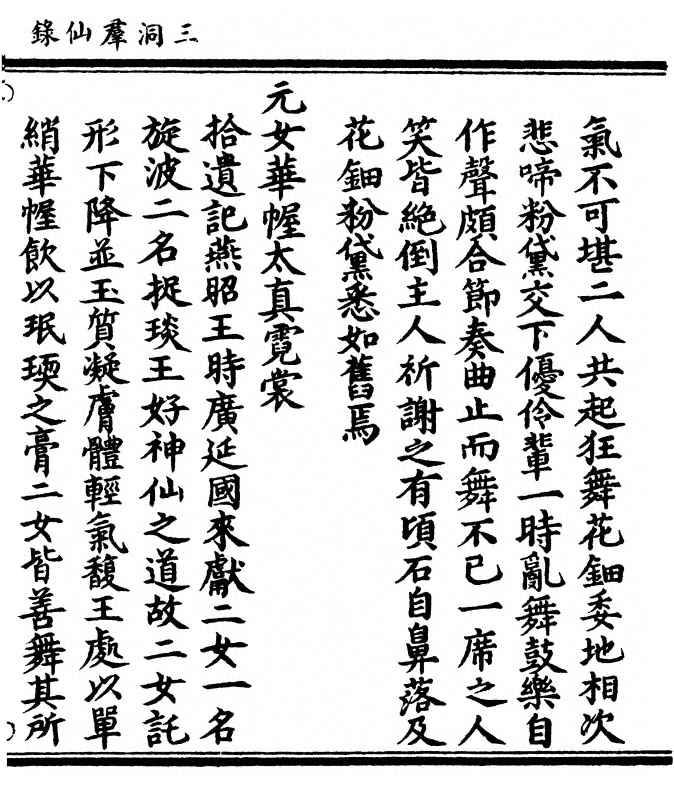 三洞羣仙錄
氣不可堪二人共起狂舞花鈿委地相次
悲啼粉黛交下優伶輩一時亂舞鼓樂自
作聲頗合節奏曲止而舞不已一席之人
笑皆絕倒主人祈謝之有頃石自鼻落及
花鈿粉黛悉如舊焉
元女華幄太真霓裳
拾遺記燕昭王時廣延國來獻二女一名
旋波二名捉琰王好神仙之道故二女託
形下降並玉質凝膚體輕氣馥王處以單
綃華幄飲以珉瑌之膏二女皆善舞其所